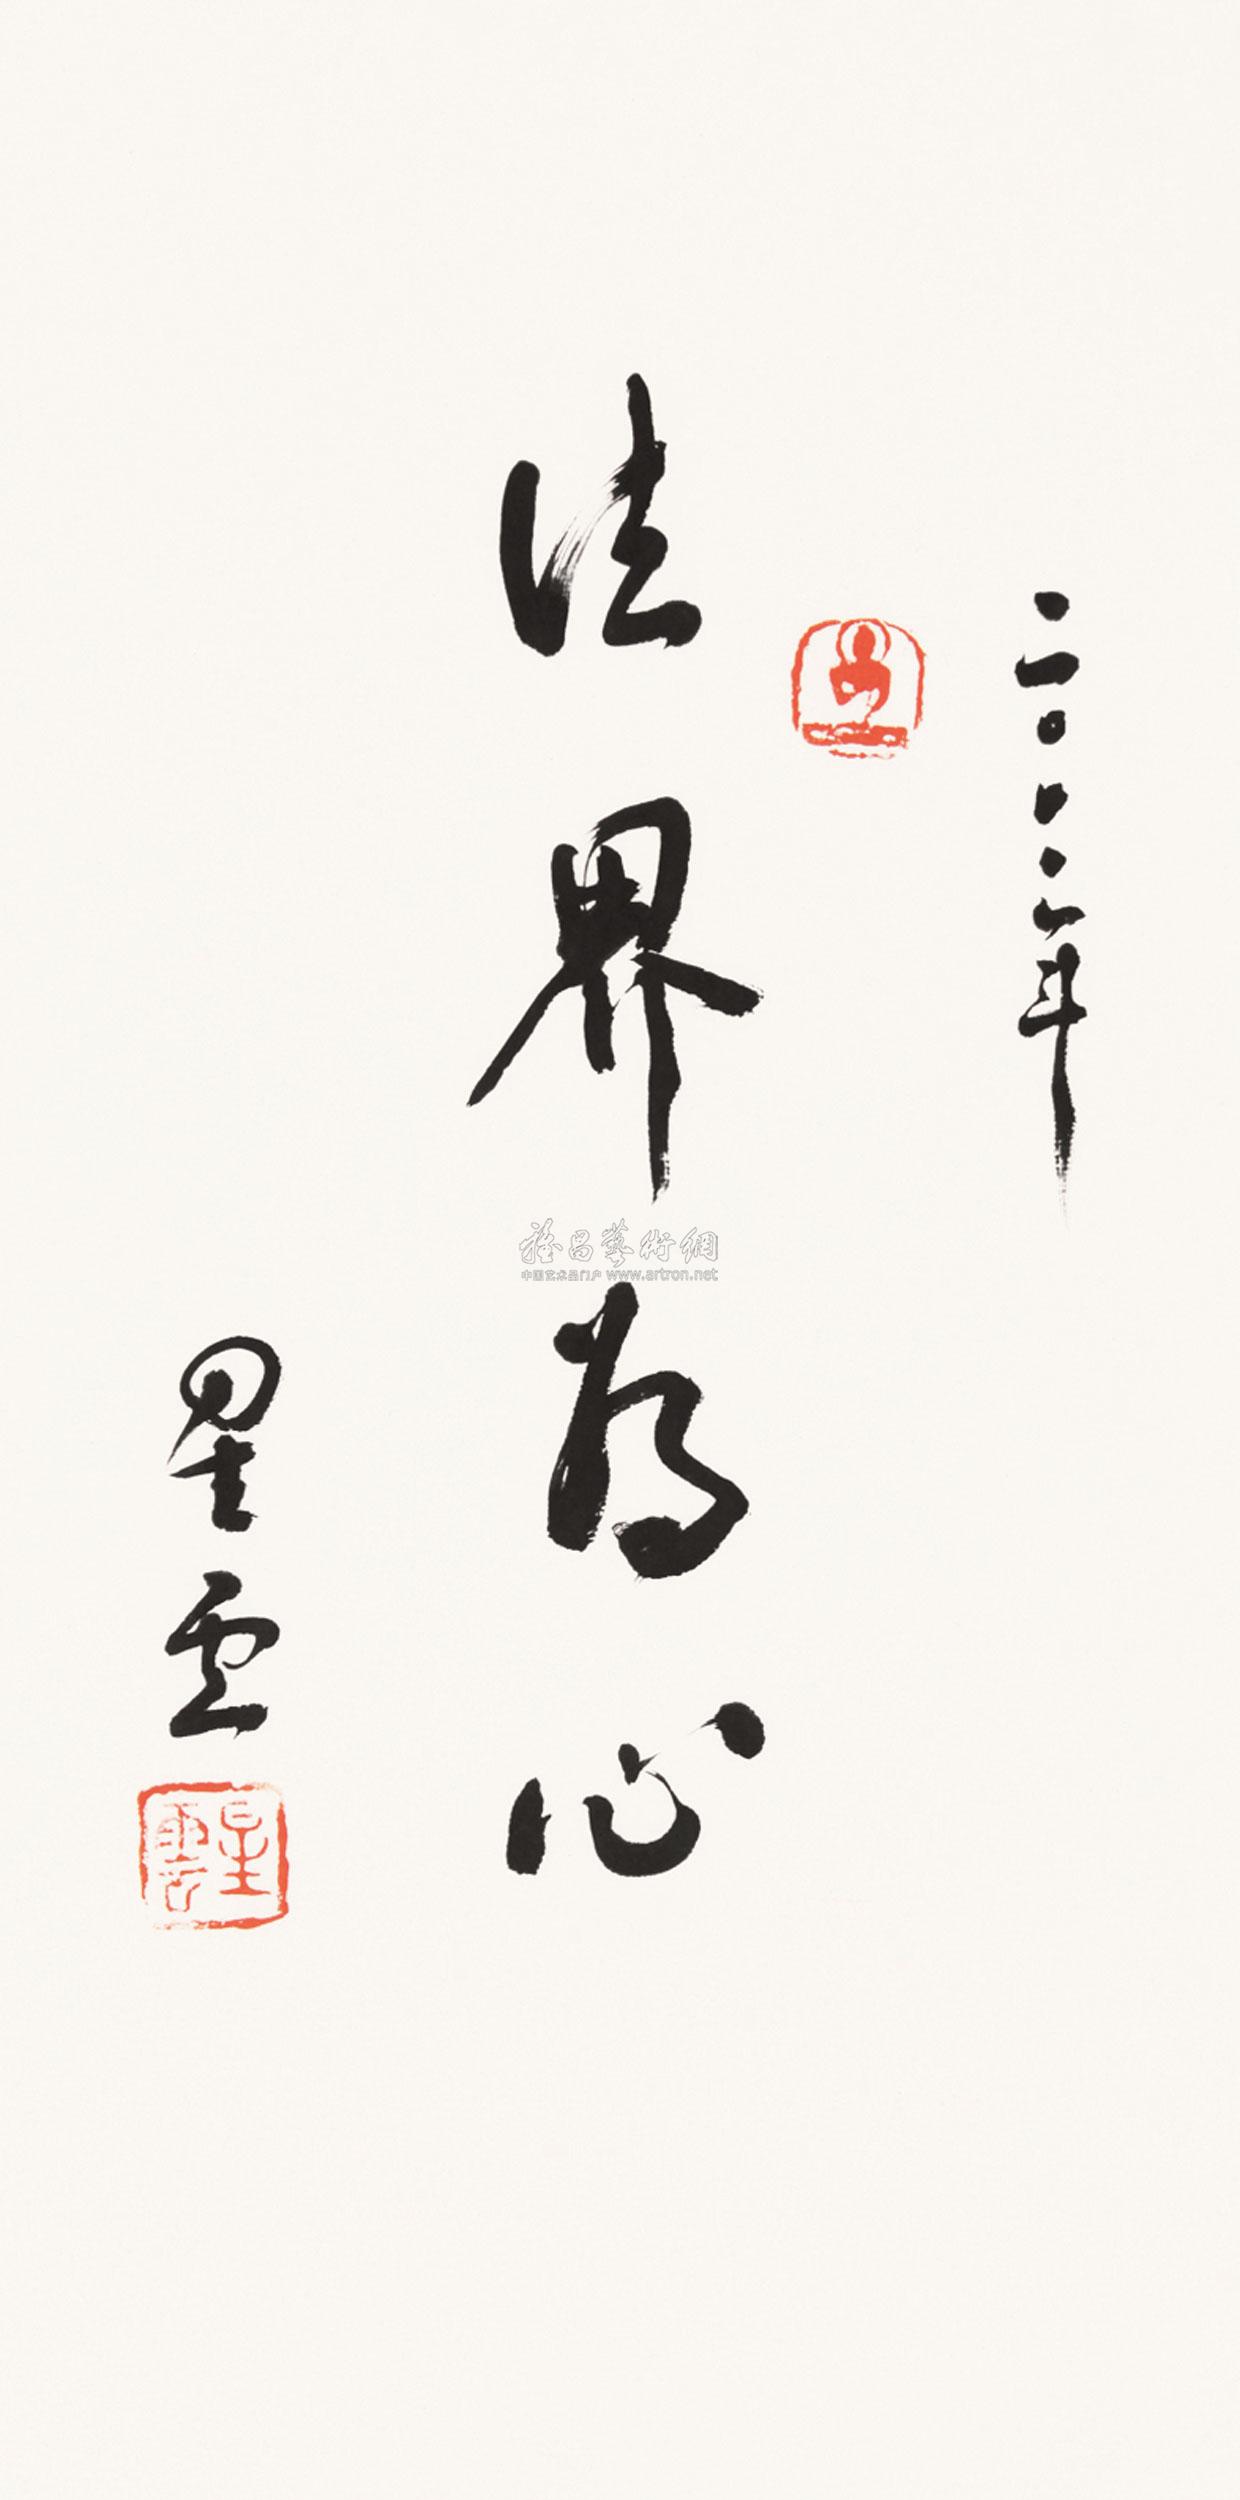 二〇〇二年
法界为心
星雲
星雲
雅昌藝術網
中国艺术品门户 www.artron.net